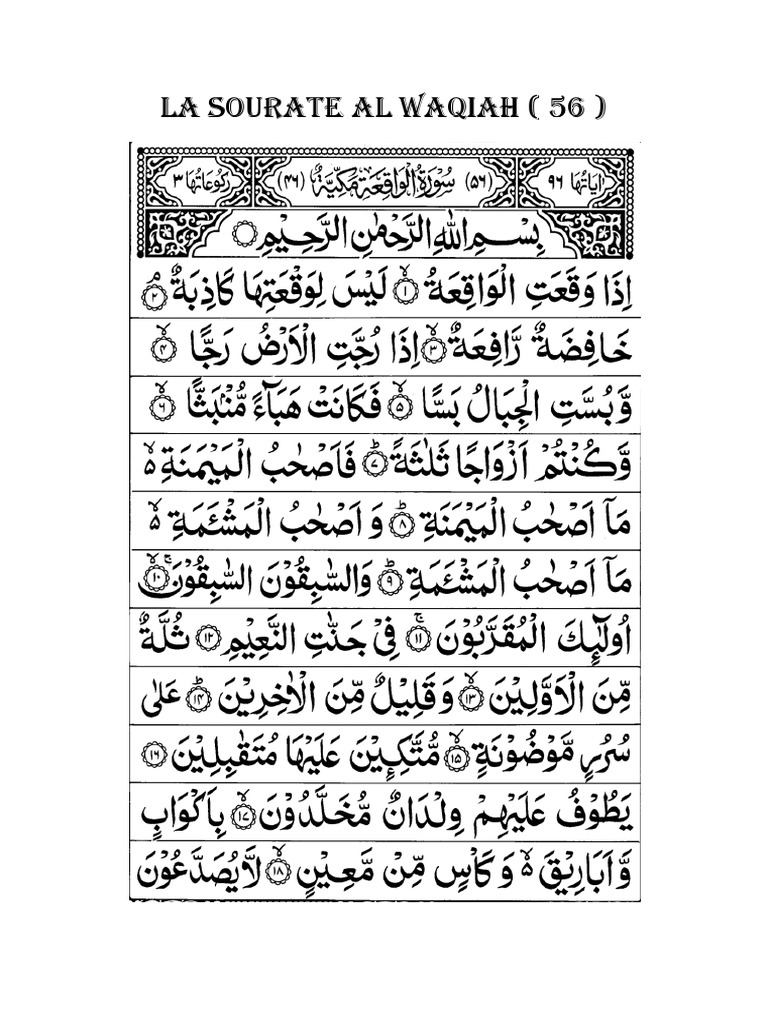 LA SOURATE AL WAQIAH ( 56 )
اٰيَاتُهَا ٩٦ (٥٦) سُوْرَةُ الْوَاقِعَةِ مَكِّيَّةٌ (٤٦) رُكُوْعَاتُهَا ٣
بِسْمِ اللّٰهِ الرَّحْمٰنِ الرَّحِيْمِ
اِذَا وَقَعَتِ الْوَاقِعَةُ ۙ﴿١﴾ لَيْسَ لِوَقْعَتِهَا كَاذِبَةٌ ۘ﴿٢﴾
خَافِضَةٌ رَّافِعَةٌ ۙ﴿٣﴾ اِذَا رُجَّتِ الْاَرْضُ رَجًّا ۙ﴿٤﴾
وَّبُسَّتِ الْجِبَالُ بَسًّا ۙ﴿٥﴾ فَكَانَتْ هَبَآءً مُّنْۢبَثًّا ۙ﴿٦﴾
وَّكُنْتُمْ اَزْوَاجًا ثَلٰثَةً ؕ﴿٧﴾ فَاَصْحٰبُ الْمَيْمَنَةِ ۙ۬
مَاۤ اَصْحٰبُ الْمَيْمَنَةِ ؕ﴿٨﴾ وَ اَصْحٰبُ الْمَشْـَٔمَةِ ۙ۬
مَاۤ اَصْحٰبُ الْمَشْـَٔمَةِ ؕ﴿٩﴾ وَالسّٰبِقُوْنَ السّٰبِقُوْنَ ۚۙ﴿١٠﴾
اُولٰٓئِكَ الْمُقَرَّبُوْنَ ۚ﴿١١﴾ فِيْ جَنّٰتِ النَّعِيْمِ ﴿١٢﴾ ثُلَّةٌ
مِّنَ الْاَوَّلِيْنَ ۙ﴿١٣﴾ وَقَلِيْلٌ مِّنَ الْاٰخِرِيْنَ ؕ﴿١٤﴾ عَلٰى
سُرُرٍ مَّوْضُوْنَةٍ ۙ﴿١٥﴾ مُّتَّكِـِٕيْنَ عَلَيْهَا مُتَقٰبِلِيْنَ ﴿١٦﴾
يَطُوْفُ عَلَيْهِمْ وِلْدَانٌ مُّخَلَّدُوْنَ ۙ﴿١٧﴾ بِاَكْوَابٍ
وَّاَبَارِيْقَ ۙ۬ وَكَاْسٍ مِّنْ مَّعِيْنٍ ۙ﴿١٨﴾ لَّا يُصَدَّعُوْنَ